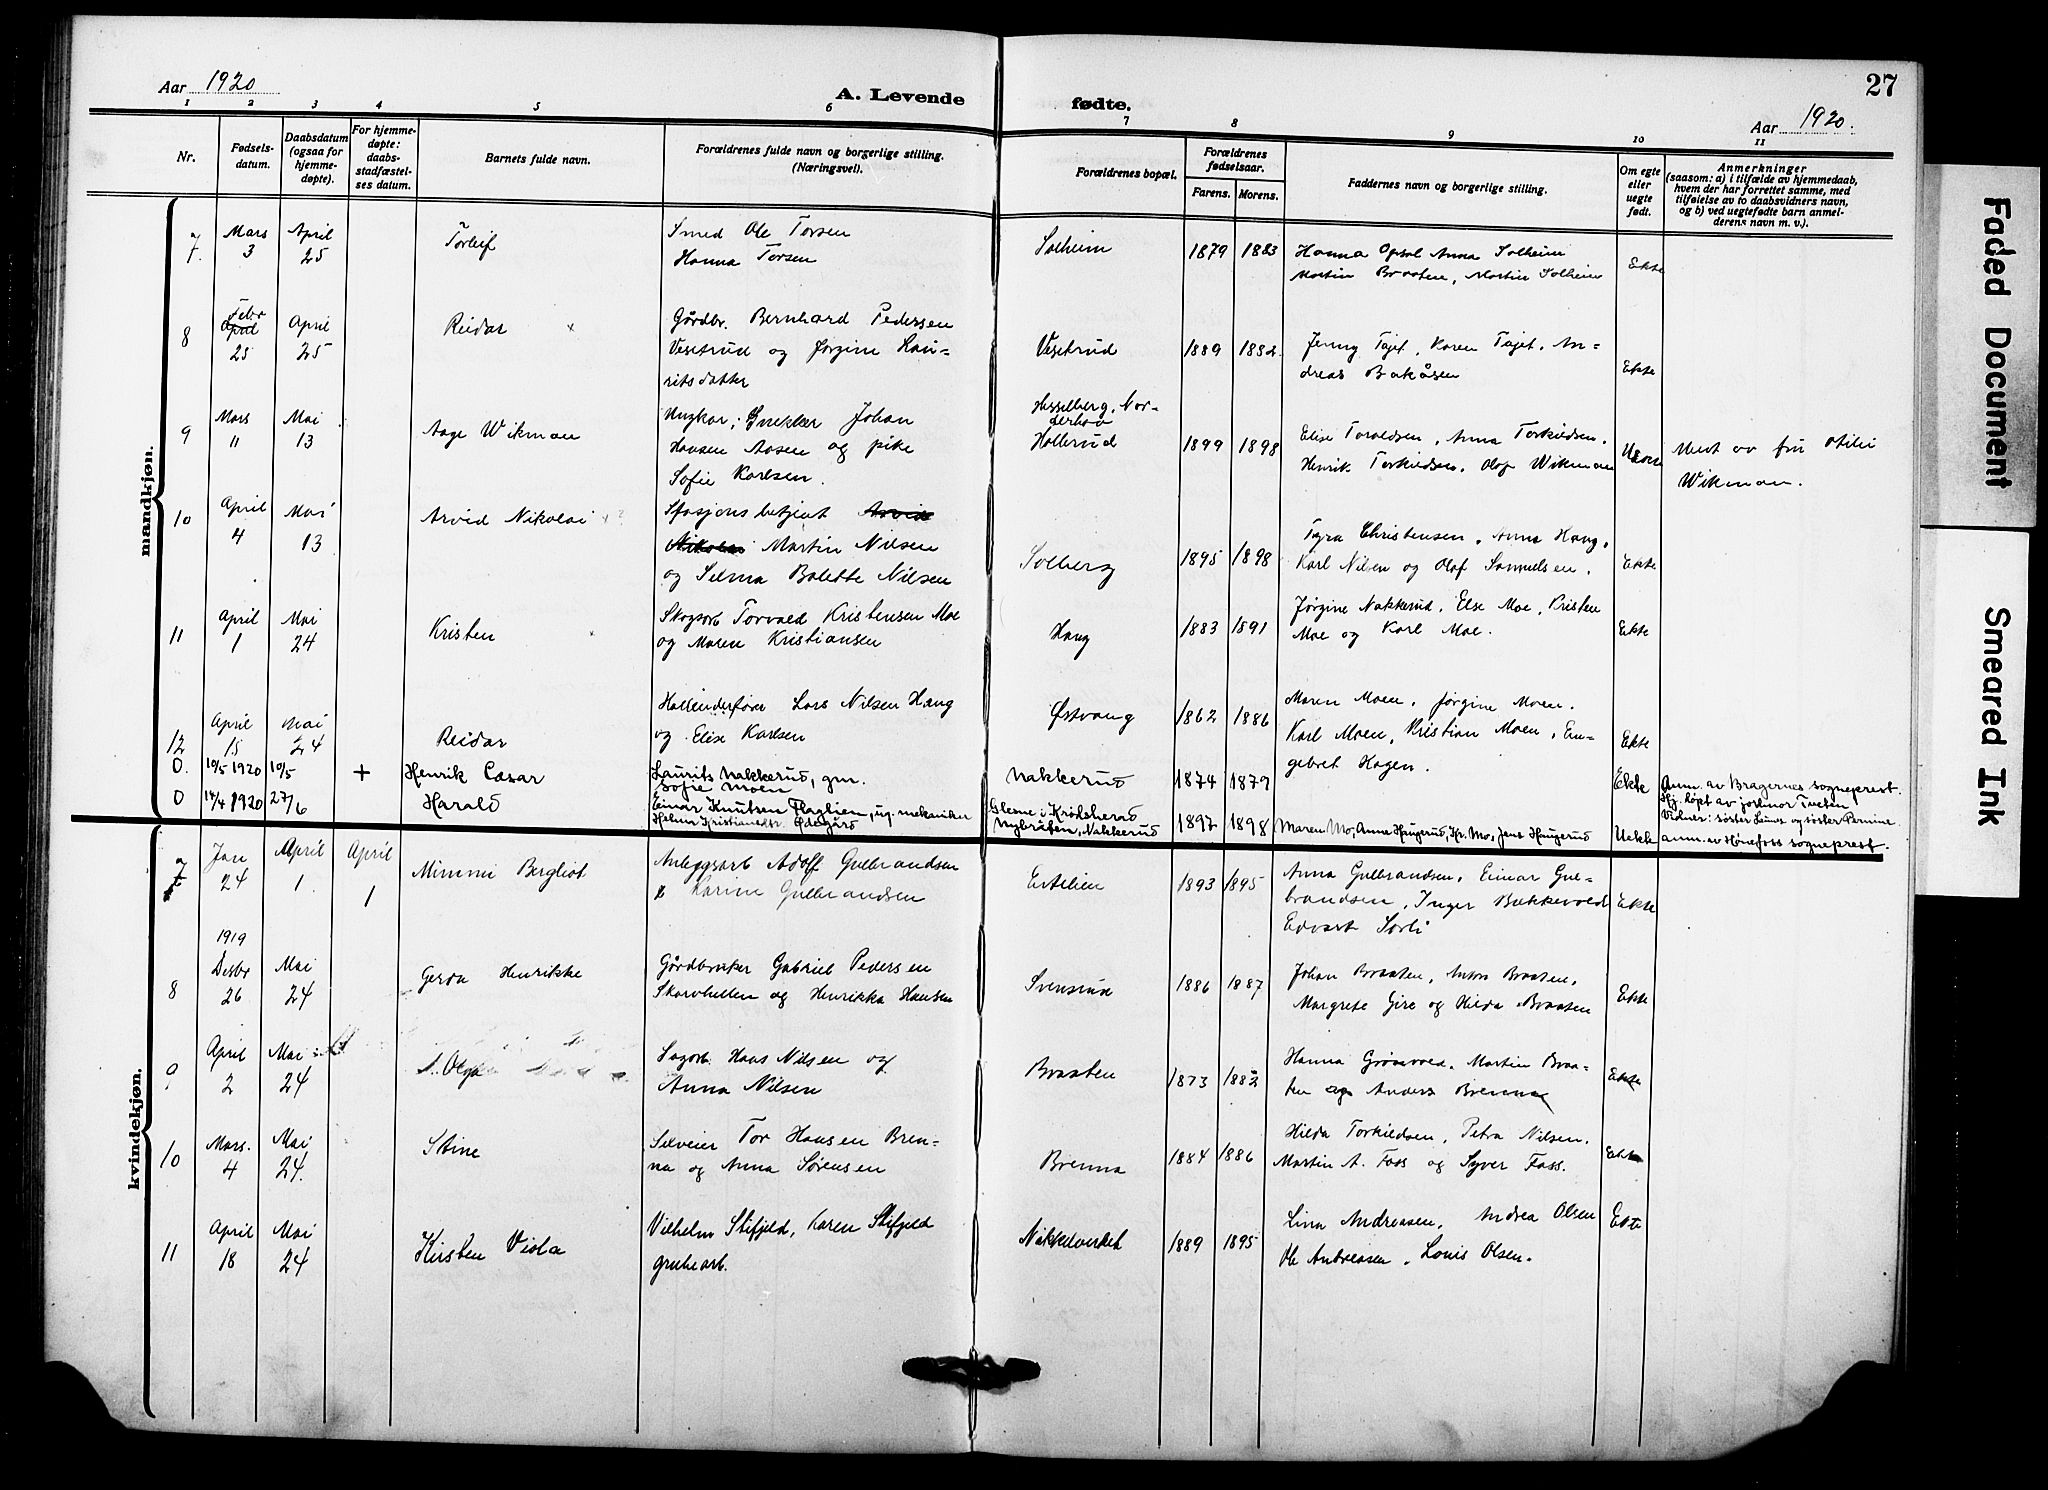 27
Aar 1920
A. Levende
fødte.
Aar 1920.
1 2 3 4 5 6 7 8 9 10 11
Nr.
Fødsels-
datum.
Daabsdatum
(ogsaa for
hjemme-
døpte).
For hjemme-
døpte:
daabs-
stadfæstel-
ses datum.
Barnets fulde navn.
Forældrenes fulde navn og borgerlige stilling.
(Næringsvei).
Forældrenes bopæl.
Forældrenes
fødselsaar.
Farens. Morens.
Faddernes navn og borgerlige stilling.
Om egte
eller
uegte
født.
Anmerkninger
(saasom: a) i tilfælde av hjemmedaab,
hvem der har forrettet samme, med
tilføielse av to daabsvidners navn,
og b) ved uegtefødte barn anmel-
derens navn m. v.).
mandkjøn.
7. Mars 3 April 25 Torleif
Smed Ole Torsen
Hanna Torsen
Solheim 1879 1883
Hanna Opsal Anna Solheim
Martin Braaten, Martin Solheim
Ekte
8 Febr April 25 April 25 Reidar
Gårdbr. Bernhard Pedersen
Vesetrud og Jørgine Hau-
ritsdatter
Vesetrud 1889 1882.
Jenny Tajet, Karen Tajet, An-
dreas Bakåsen
Ekte
9 Mars 11 Mai 13 Aage Wikman
Ungkar, Snekker Johan
Hansen Aasen og pike
Sofie Karlsen.
Hesselberg, Nor-
derhov
Hollerud 1899 1898
Elise Toraldsen, Anna Torkildsen.
Henrik Torkildsen, Olof Wikman
Uekte
Meldt av fru Otilie
Wikman.
10 April 4 Mai 13 Arvid Nikolai
Stasjonsbetjent Arvid
Nikolai Martin Nilsen
og Selma Bolette Nilsen
Solberg 1895 1898
Tyra Christensen, Anna Haug,
Karl Nilsen og Olof Samuelsen.
Ekte
11 April 1 Mai 24 Kristen
Skogsarb Torvald Kristensen Moe
og Maren Kristiansen
Haug 1883 1891
Jørgine Nakkerud, Else Moe, Kristen
Moe og Karl Moe.
Ekte
12 April 15 Mai 24 Reidar
Hollenderfører Lars Nilsen Haug
og Elise Karlsen
Østvang 1862 1886
Maren Moen, Jørgine Moen.
Karl Moen, Kristian Moen, En-
gebret Hagen.
Ekte
0. 10/5 1920 10/5 + Henrik Cæsar
Laurits Nakkerud, gm.
Sofie Moen
Nakkerud 1874 1879 Ekte
Anm. av Bragernes sogneprest.
Hj. døpt av jordmor Tvesen
Vidner: søster Launes og søster Pernine.
0 14/4 1920 27/6 Harald
Einar Knutsen Flaglien, ug. mekaniker
Helene Kristiansdtr. Ødegård
Glesne i Krødsherad
Nybråten, Nakkerud 1897 1898
Maren Mo, Anne Haugerud, Kr. Mo, Jens Haugerud
Uekte anm. av Hønefoss sogneprest.
kvindekjøn.
7 Jan 24 April 1. April 1 Mimmi Bergliot
Anleggsarb Adolf Gulbrandsen
Karine Gulbrandsen
Eirtelien 1893 1895
Anna Gulbrandsen, Einar Gul-
brandsen, Inger Bækkevold
Edvart Sorli
Ekte
8 1919 Desbr 26 Mai 24 Gerda Henrikke
Gårdbruker Gabriel Pedersen
Skarvhellen og Henrikka Hansen
Svensrud 1886 1887
Johan Braaten, Anton Braaten,
Margrete Gire og Hilda Braaten
Ekte
9 April 2 Mai 24 Olga
Sagarb Hans Nilsen og
Anna Nilsen
Braaten 1873 1882
Hanna Grøsvold, Martin Braa-
ten og Anders Brenna
Ekte
10 Mars. 4 Mai 24. Stine
Selveier Tor Hansen Bren-
na og Anna Sørensen
Brenna 1884 1886
Hilda Torkildsen, Petra Nilsen.
Martin A. Foss og Syver Foss.
Ekte
11 April 18 Mai 24 Kirsten Viola
Vilhelm Stifjeld, Karen Stifjeld
grubearb.
Nakkelverket 1889 1895
Lina Andreasen, Andrea Olsen
Ole Andreasen, Louis Olsen.
Ekte
Faded Document
Smeared Ink